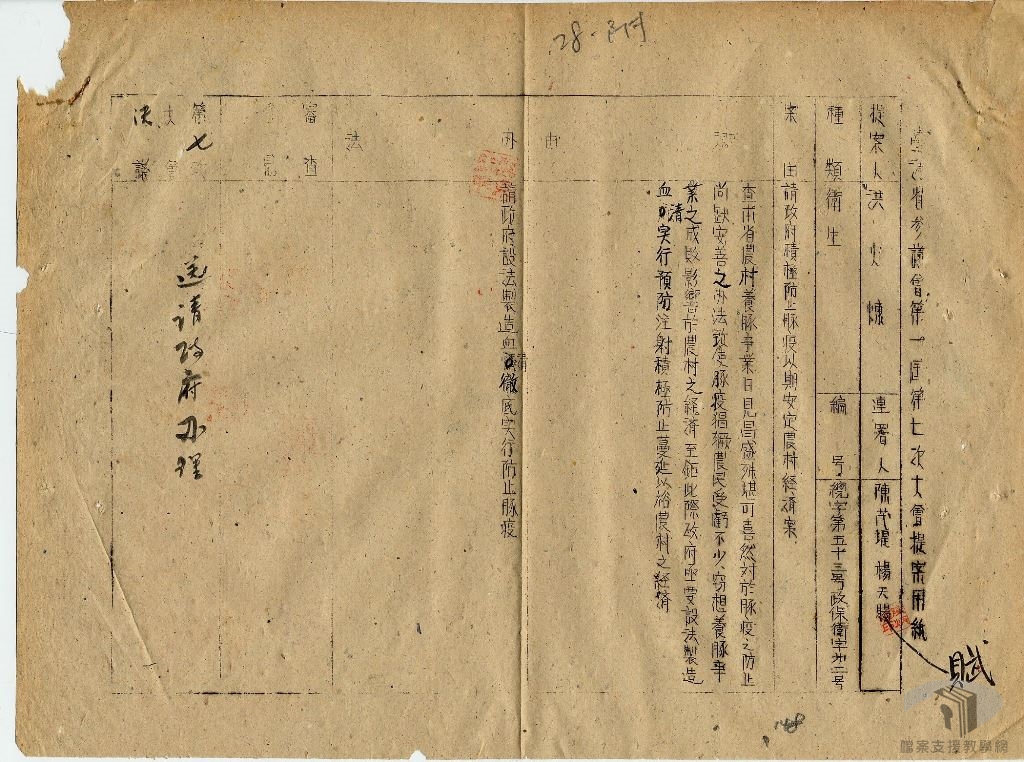 28-附
臺灣省參議會第一屆第七次大會提案用紙
提案人 洪火煉 連署人 陳茂堤 楊天賦
賦
種類 衛生 編号 總字第五十三号政保衛字第二号
案由 請政府積極防止豚疫以期安定農村經濟案
理由
查本省農村養豚事業日見昌盛殊堪可喜然対於豚疫之防止
尚缺妥善之办法致使豚疫猖獗農民受虧不少窃想養豚事
業之成敗影響於農村之經濟至鉅此際政府亟要設法製造
血清実行預防注射積極防止蔓延以裕農村之經濟
办法
請政府設法製造血清徹底实行防止豚疫
審查
第七次大會決議
送請政府办理
148
檔案支援教學網